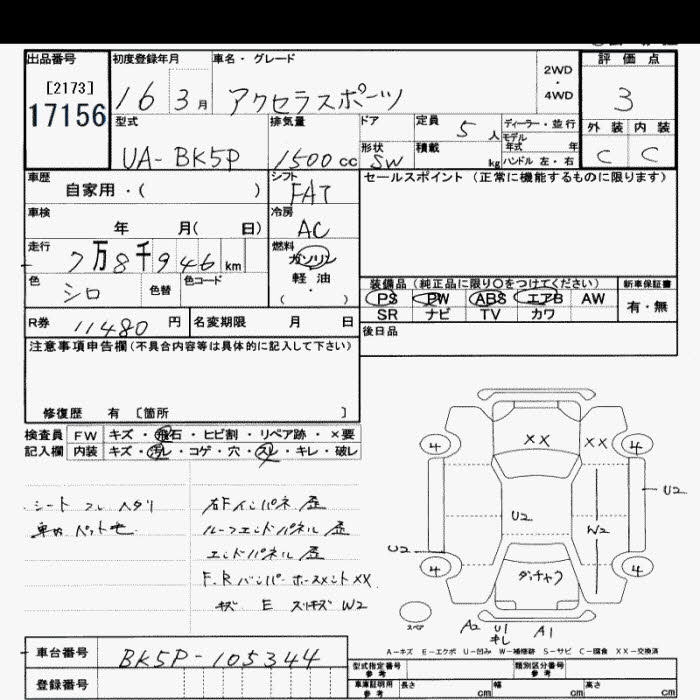 出品番号 初度登録年月 車名・グレード 2WD・4WD 評価点
[2173]
17156 16 3月 アクセラスポーツ 3
型式 排気量 ドア 定員 5人 ディーラー・並行 外装 内装
モデル年式 年
UA-BK5P 1500cc 形状 SW 積載 kg ハンドル 左・右 C C
車歴 シフト セールスポイント(正常に機能するものに限ります)
自家用・( ) FAT
車検 冷房
年 月( 日) AC
走行 燃料
7万8千946km ガソリン
色 色替 色コード 軽油
シロ ( )
装備品(純正品に限り○をつけてください) 新車保証書
PS PW ABS エアB AW 有・無
SR ナビ TV カワ
R券 11480円 名変期限 月 日 後日品
注意事項申告欄(不具合内容等は具体的に記入して下さい)
修復歴 有 [箇所 ]
検査員 FW キズ・飛石・ヒビ割・リペア跡・×要
記入欄 内装 キズ・汚レ・コゲ・穴・スレ・キレ・破レ
シート スレ ヘタリ
車内 ペット毛
右Fインパネ 歪
ルーフエンドパネル 歪
エンドパネル 歪
F.R バンパーホースメント XX
キズ E スリキズ W2
XX XX
4 4
U2
U2 W2
U2
4 ダッチャク 4
スペア A2 U1 キレ A1
A-キズ E-エクボ U-凹み W-補修跡 S-サビ C-腐食 XX-交換済
車台番号 BK5P-105344 型式指定番号 参考 類別区分番号 参考
登録番号 車庫証明用 参考 長さ cm 幅 cm 高さ cm